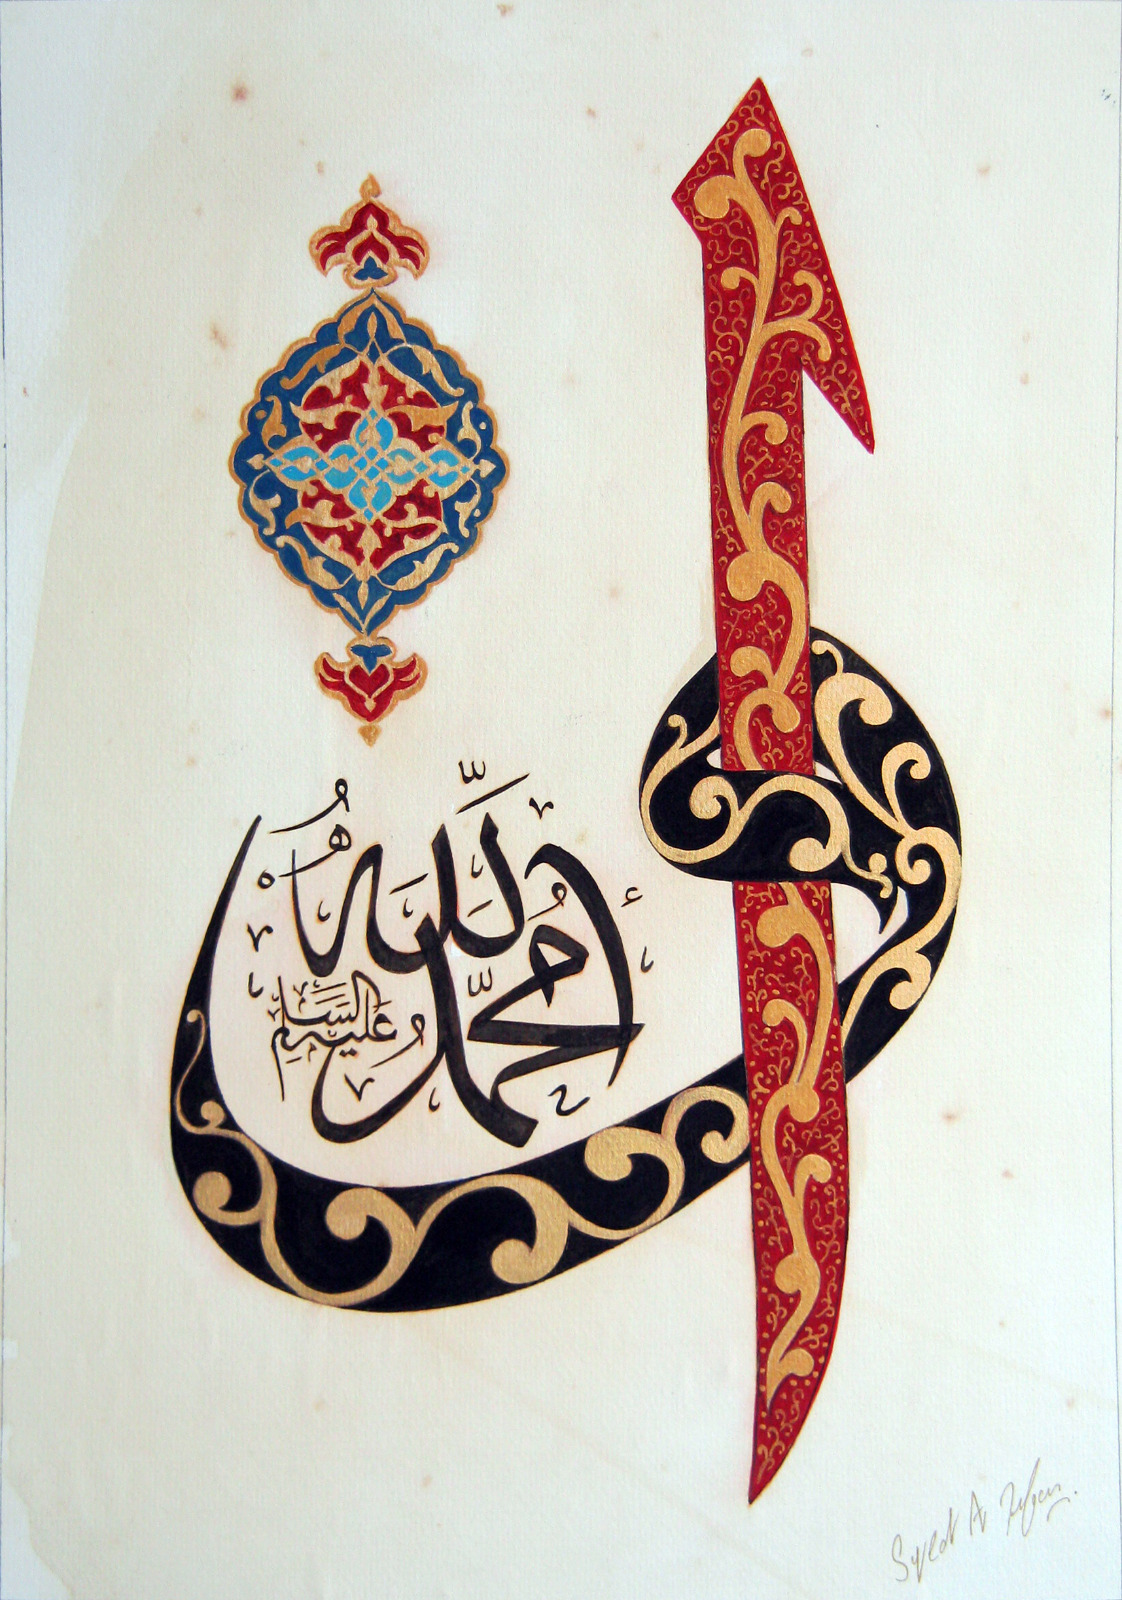 او
اللّٰه
محمّد
عليه السلام
Syed A